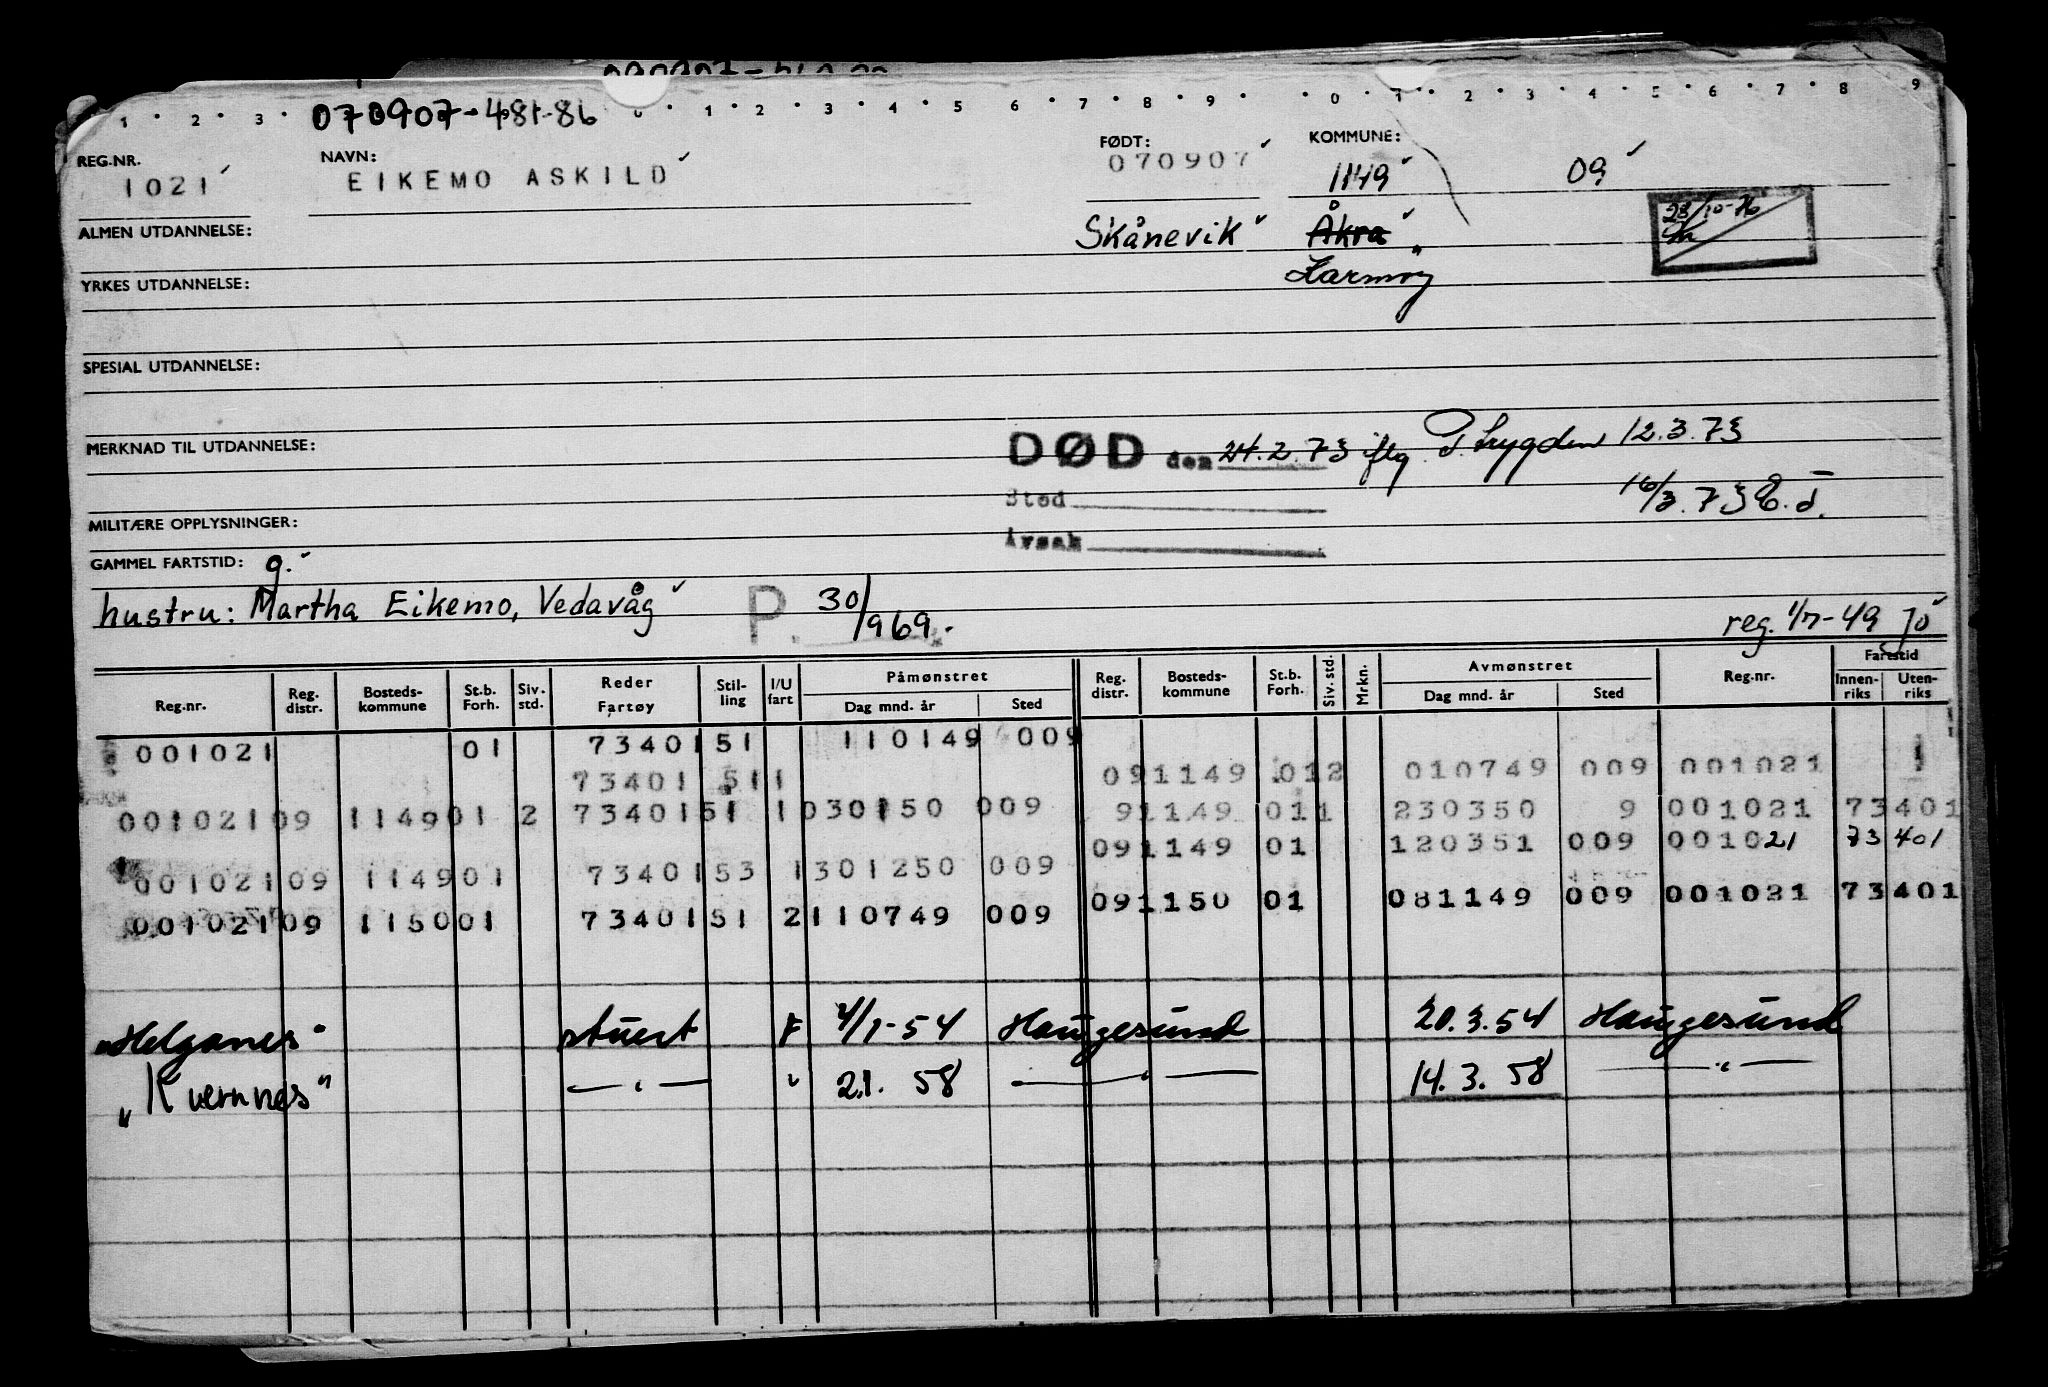 1 · 2 · 3 · 070907-48186 · 1 · 2 · 3 · 4 · 5 · 6 · 7 · 8 · 9 · 0 · 1 · 2 · 3 · 4 · 5 · 6 · 7 · 8 · 9
REG.NR. NAVN: FØDT: KOMMUNE:
1021 EIKEMO ASKILD 070907 1149 09
ALMEN UTDANNELSE: Skånevik Åkra 28/10-76
Karmøy
YRKES UTDANNELSE:
SPESIAL UTDANNELSE:
MERKNAD TIL UTDANNELSE: DØD den 24.2.73 iflg P.trygden 12.3.73
Sted 16/3.73
MILITÆRE OPPLYSNINGER: Årsak
GAMMEL FARTSTID: g.
hustru: Martha Eikemo, Vedavåg P. 30/969. reg. 1/7-49
Reg.nr. Reg. distr. Bosteds-kommune St.b. Forh. Siv. std. Reder Fartøy Stil-ling I/U fart Påmønstret Dag mnd. år Sted Reg. distr. Bosteds-kommune St.b. Forh. Siv. std. Mrkn. Avmønstret Dag mnd. år Sted Reg.nr. Fartstid Innen-riks Uten-riks
001021 01 73401 51 110149 009
73401 511 091149 012 010749 009 001021 1
001021 09 1149 01 2 73401 51 1 030150 009 91149 011 230350 9 001021 73401
091149 01 120351 009 001021 73401
001021 09 1149 01 73401 53 1 301250 009
091150 01 081149 009 001021 73401
001021 09 1150 01 73401 51 2 110749 009
"Helganes" stuert F 4/1-54 Haugesund 20.3.54 Haugesund
"Kvernnes" — " — " 2.1. 58 — " — 14.3.58 — " —